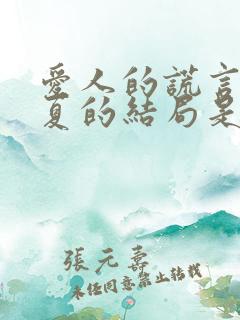 愛人的謊言
夏的結局是
張元壽
未經同意禁止轉載